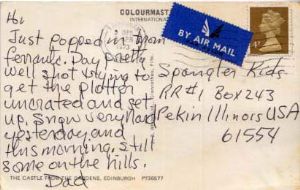 COLOURMASTER
INTERNATIONAL
BY AIR MAIL
Hi,
Just popped in from
Day pretty
well shot trying to
get the plotter
uncrated and set
up. Snow very
yesterday and
this morning, still
some on the hills.
Dad
Spangler Kids
RR#1 Box 243
Pekin Illinois USA
61554
THE CASTLE FROM THE GARDENS, EDINBURGH PT36577